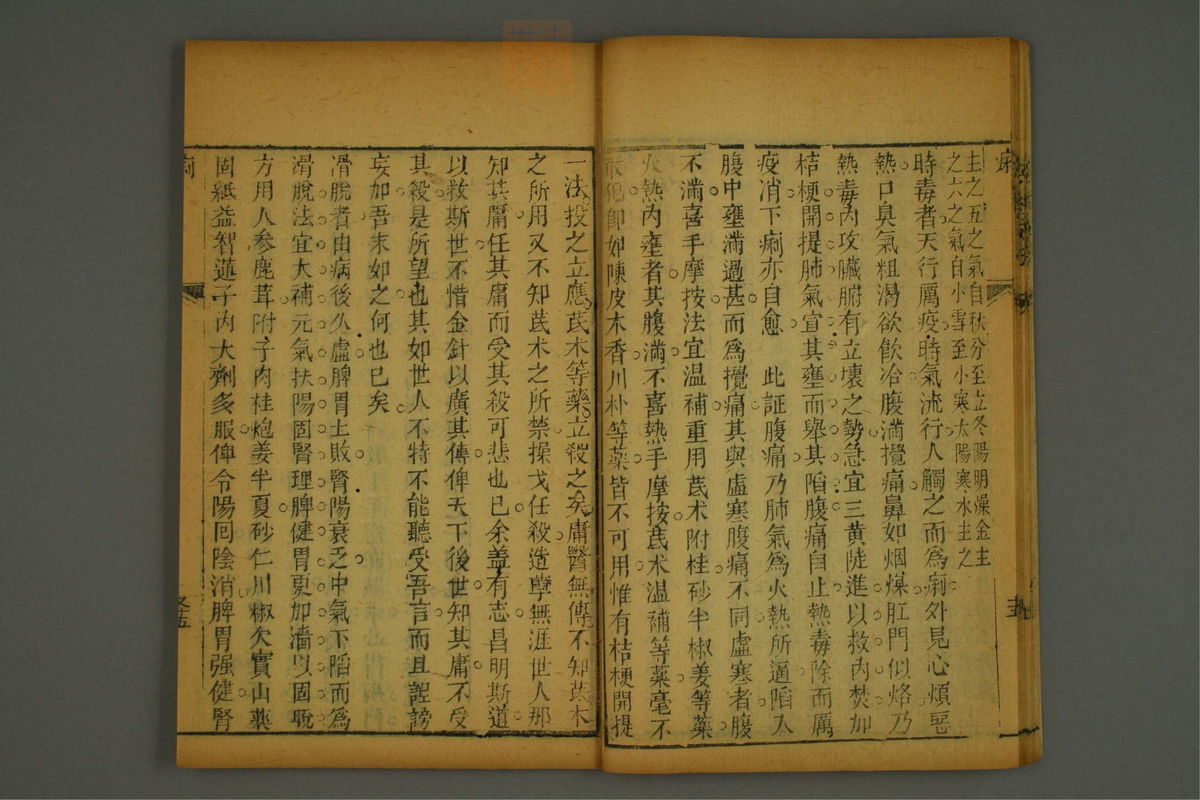 主之五之氣自秋分至立冬陽明燥金主
之六之氣自小雪至小寒太陽寒水主之
時毒者天行厲疫時氣流行人觸之而為痢外見心煩惡
熱口臭氣粗渴欲飲冷腹滿攪痛鼻如烟煤肛門似烙乃
熱毒內攻臟腑有立壞之勢急宜三黃陡進以救內焚加
桔梗開提肺氣宣其壅而舉其陷腹痛自止熱毒除而厲
疫消下痢亦自愈　此証腹痛乃肺氣為火熱所逼陷入
腹中壅滿過甚而為攪痛其與虛寒腹痛不同虛寒者腹
不滿喜手摩按法宜溫補重用芪术附桂砂半椒姜等藥
火熱內壅者其腹滿不喜熱手摩按芪术溫補等藥毫不
敢犯即如陳皮木香川朴等藥皆不可用惟有桔梗開提
一法投之立應芪术等藥立殺之矣庸醫無傳不知芪术
之所用又不知芪术之所禁操戈任殺造孽無涯世人那
知其庸任其庸而受其殺可悲也已余盖有志昌明斯道
以救斯世不惜金針以廣其傳俾天下後世知其庸不受
其殺是所望也其如世人不特不能聽受吾言而且謹謗
妄加吾末如之何也已矣
滑脫者由病後久虛脾胃土敗腎陽衰乏中氣下陷而為
滑脫法宜大補元氣扶陽固腎理脾健胃更加濇以固脫
方用人參鹿茸附子肉桂炮姜半夏砂仁川椒欠實山藥
固紙益智蓮子內大劑多服俾令陽囘陰消脾胃强健腎